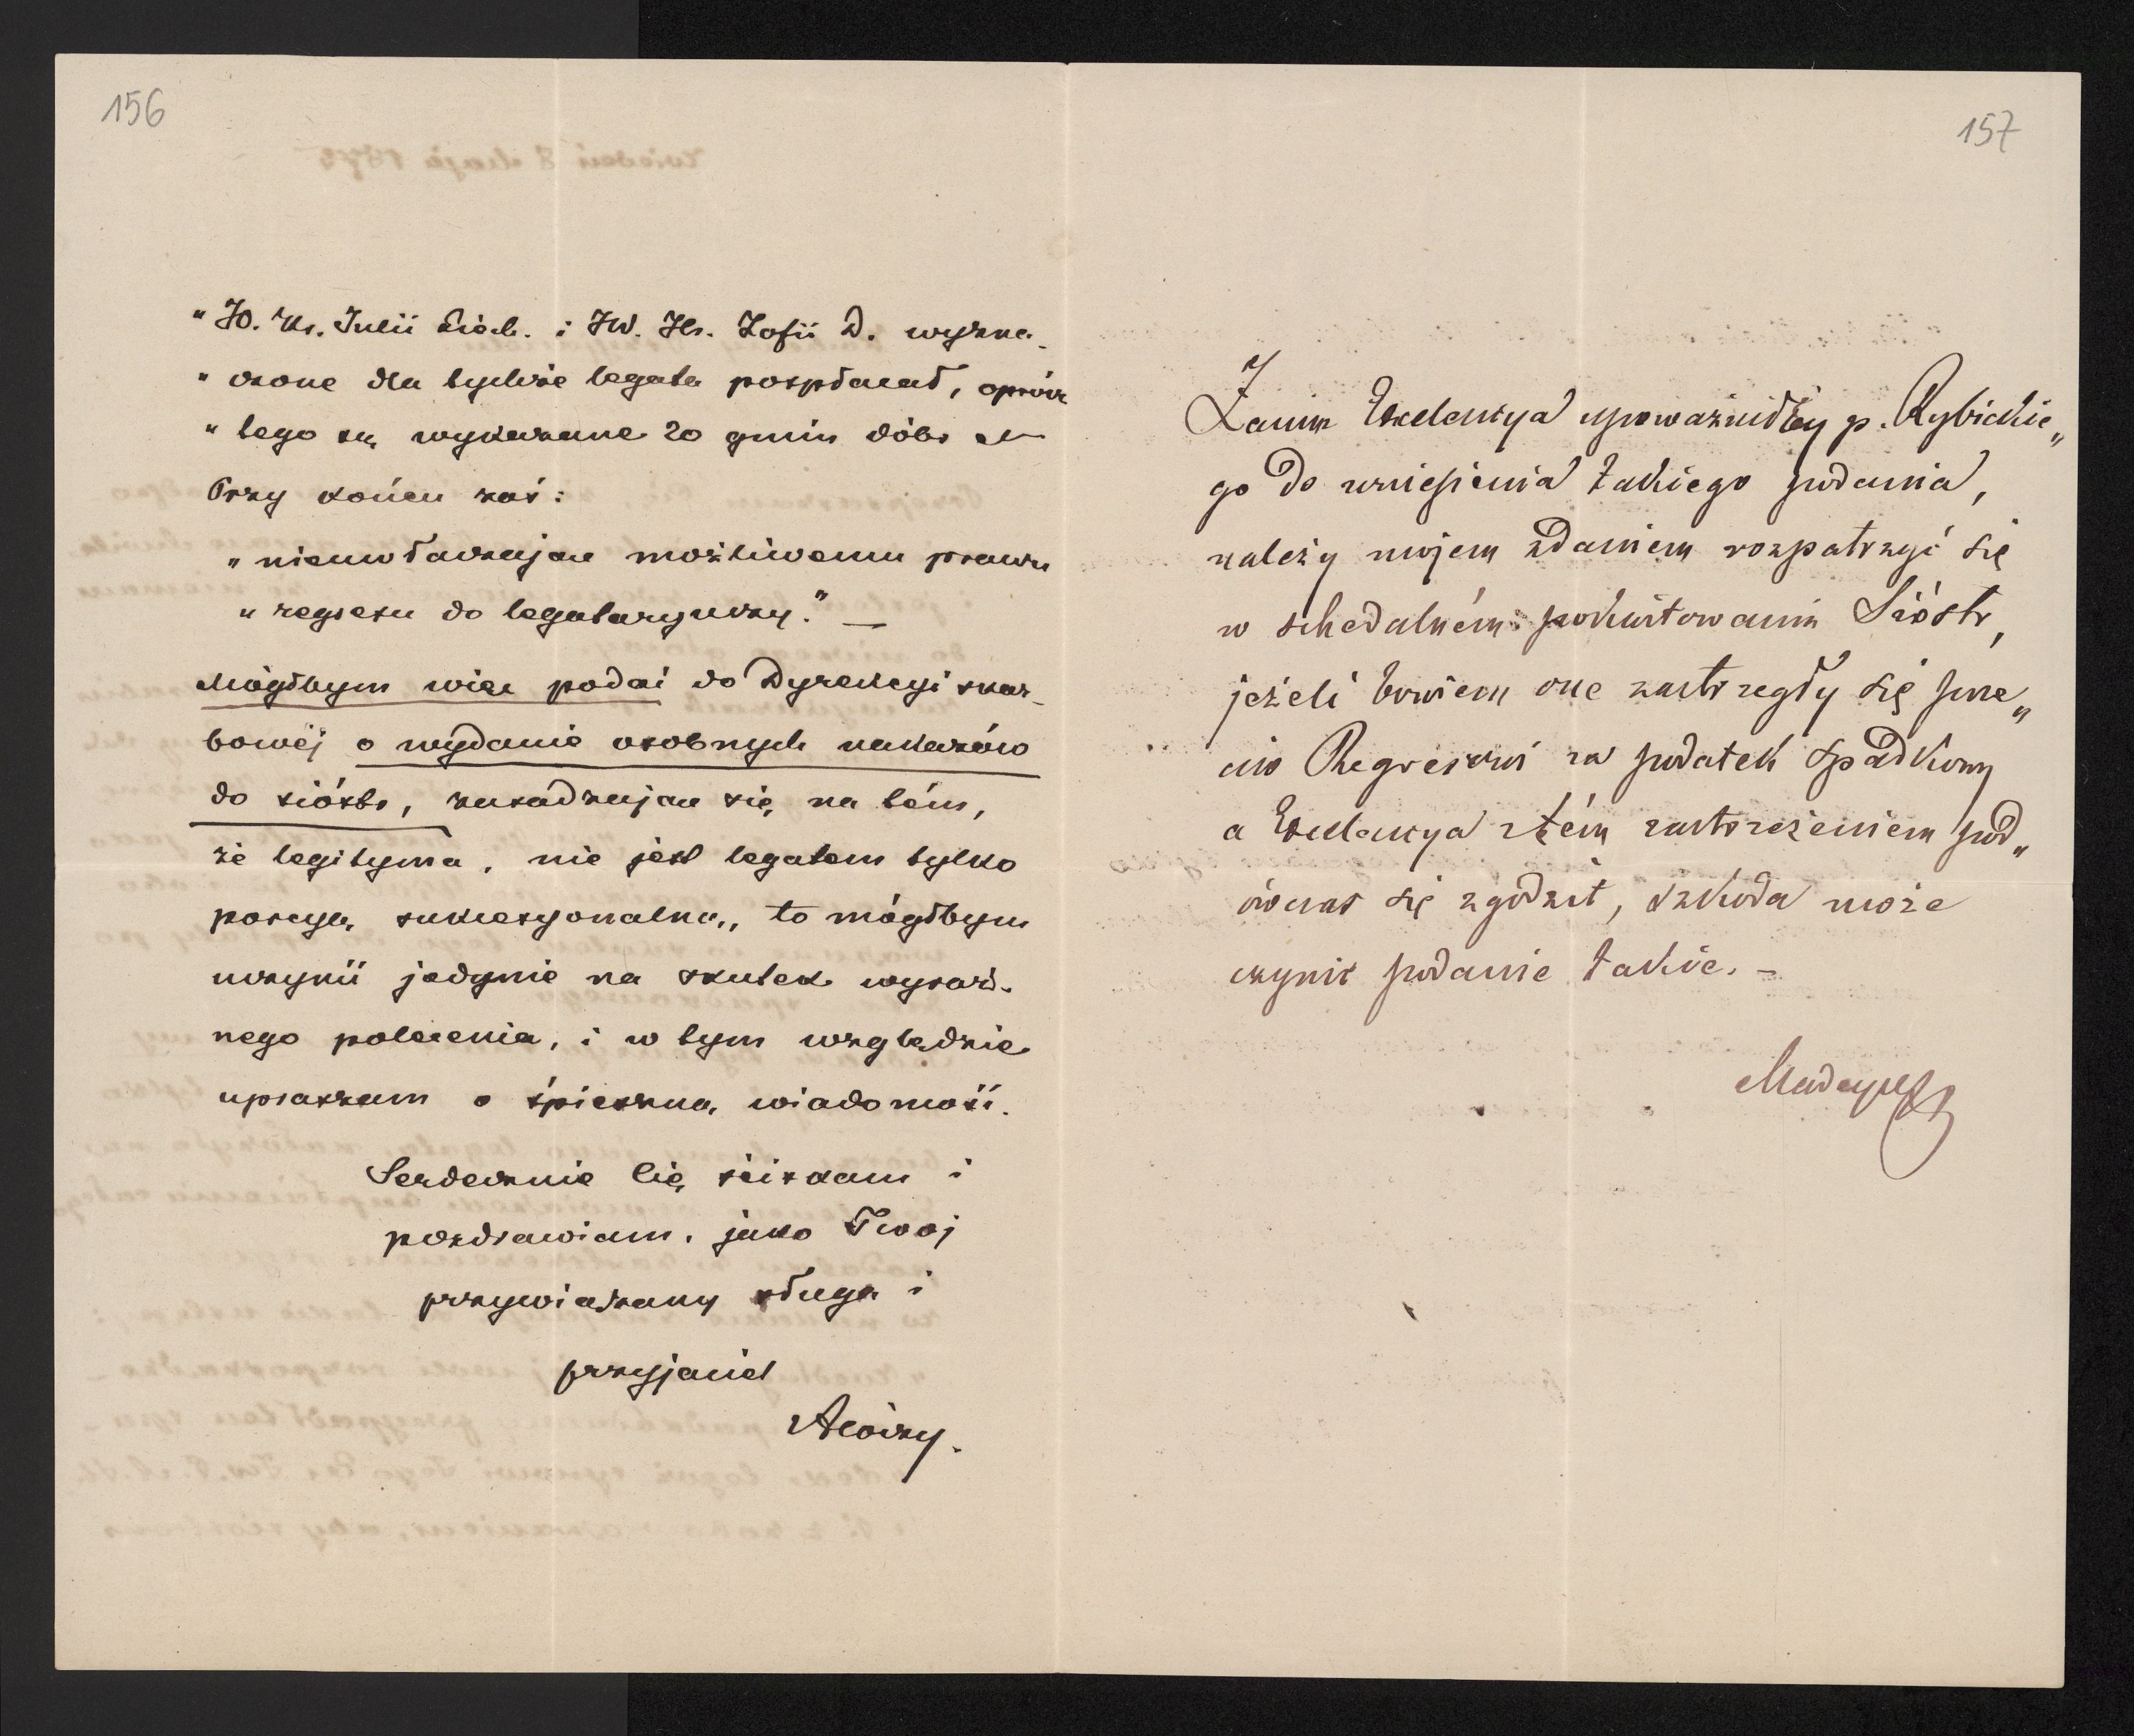 156
„JO. Ks. Julii Lich. i JW. Hr. Zofii D. wyzna-
„czone dla tychże legata pospłacał, oprócz
„tego są wykazane 20 gmin dóbr
Przy końcu zaś:
„nieuwłaczając możliwemu prawu
„regresu do legataryuszy." —
Mógłbym więc podać do Dyrekcyi skar-
bowéj o wydanie osobnych nakazów
do sióstr, zasadzając się na tém,
że legityma, nie jest legatem tylko
porcyą sukcesyonalną, to mógłbym
uczynić jedynie na skutek wyraź-
nego polecenia, i w tym względzie
upraszam o śpieszną wiadomość.
Serdecznie Cię ściskam i
pozdrawiam, jako Twój
przywiązany sługa i
przyjaciel
Alojzy.
157
Zanim Exelencya upoważniłby p. Rybickie„
go do wniesienia takiego podania,
należy mojem zdaniem rozpatrzyć się
w schedalném pokwitowaniu Sióstr,
jeżeli bowiem one zastrzegły się prze„
ciw Regresowi za podatek spadkowy
a Exelencya z tém zastrzeżeniem pod„
ówczas się zgodził, szkoda może
czynić podanie takie. –
Madeyski